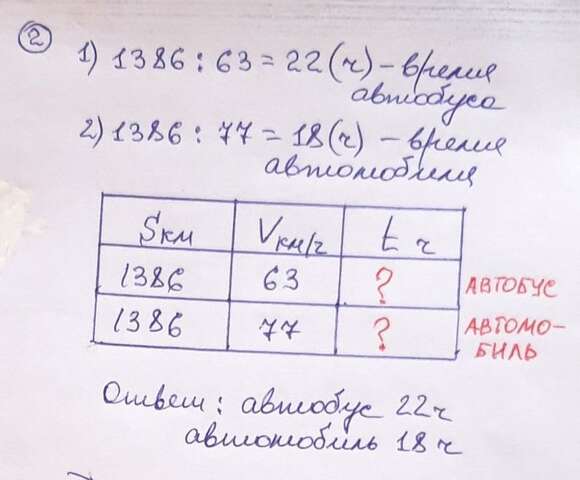 2
1) 1386 : 63 = 22 (ч) – время
автобуса
2) 1386 : 77 = 18 (ч) – время
автомобиля
Sкм Vкм/ч t ч
1386 63 ? АВТОБУС
1386 77 ? АВТОМО-
БИЛЬ
Ответ: автобус 22ч
автомобиль 18ч